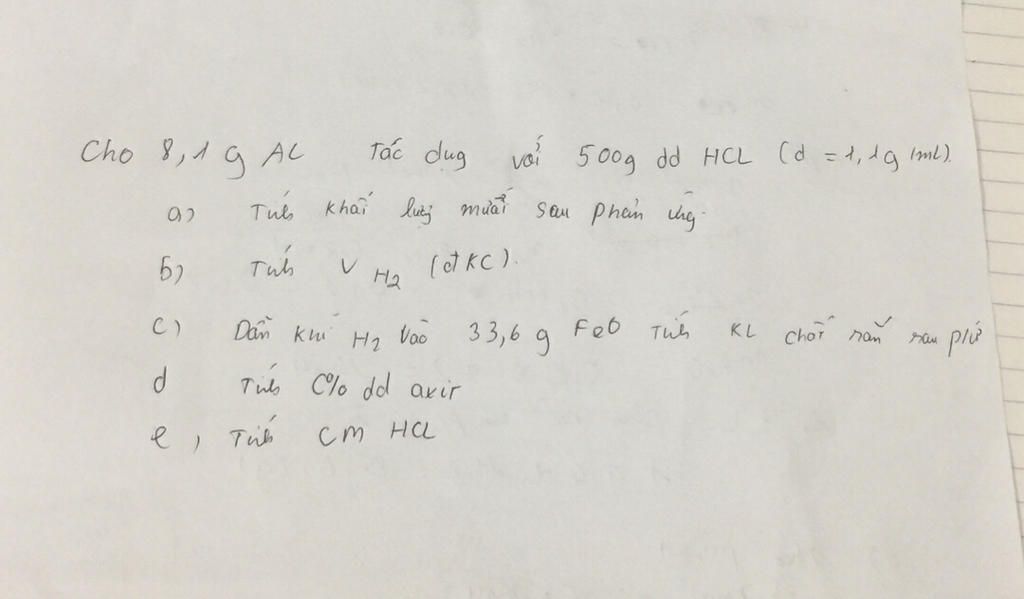 Cho 8,1 g AL Tác dụg với 500g dd HCL (d = 1,1g/mL).
a) Tính khối lượg muối sau phản ứng.
b) Tính V H2 (đKC).
c) Dẫn khí H2 vào 33,6 g FeO Tính KL chất rắn sau pứ
d Tính C% dd axit
e, Tính CM HCL